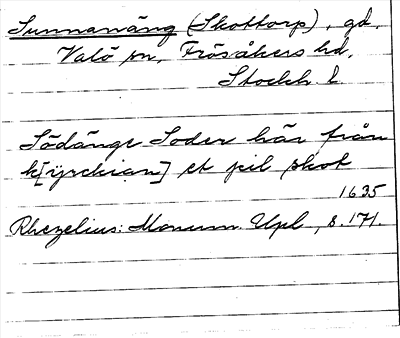 Sunnanäng (Skottorp), gd,
Valö sn, Frösåkers hd,
Stockh. l
Södängr Soder här från
k[yrckian] et pil skot
1635
Rhezelius: Monum. Upl, s. 171.